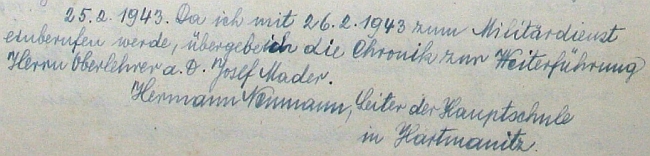 25.2.1943. Da ich mit 26.2.1943 zum Militärdienst
einberufen werde, übergebe ich die Chronik zur Weiterführung
Herrn Oberlehrer a. D. Josef Mader.
Hermann Neumann, Leiter der Hauptschule
in Hartmanitz.